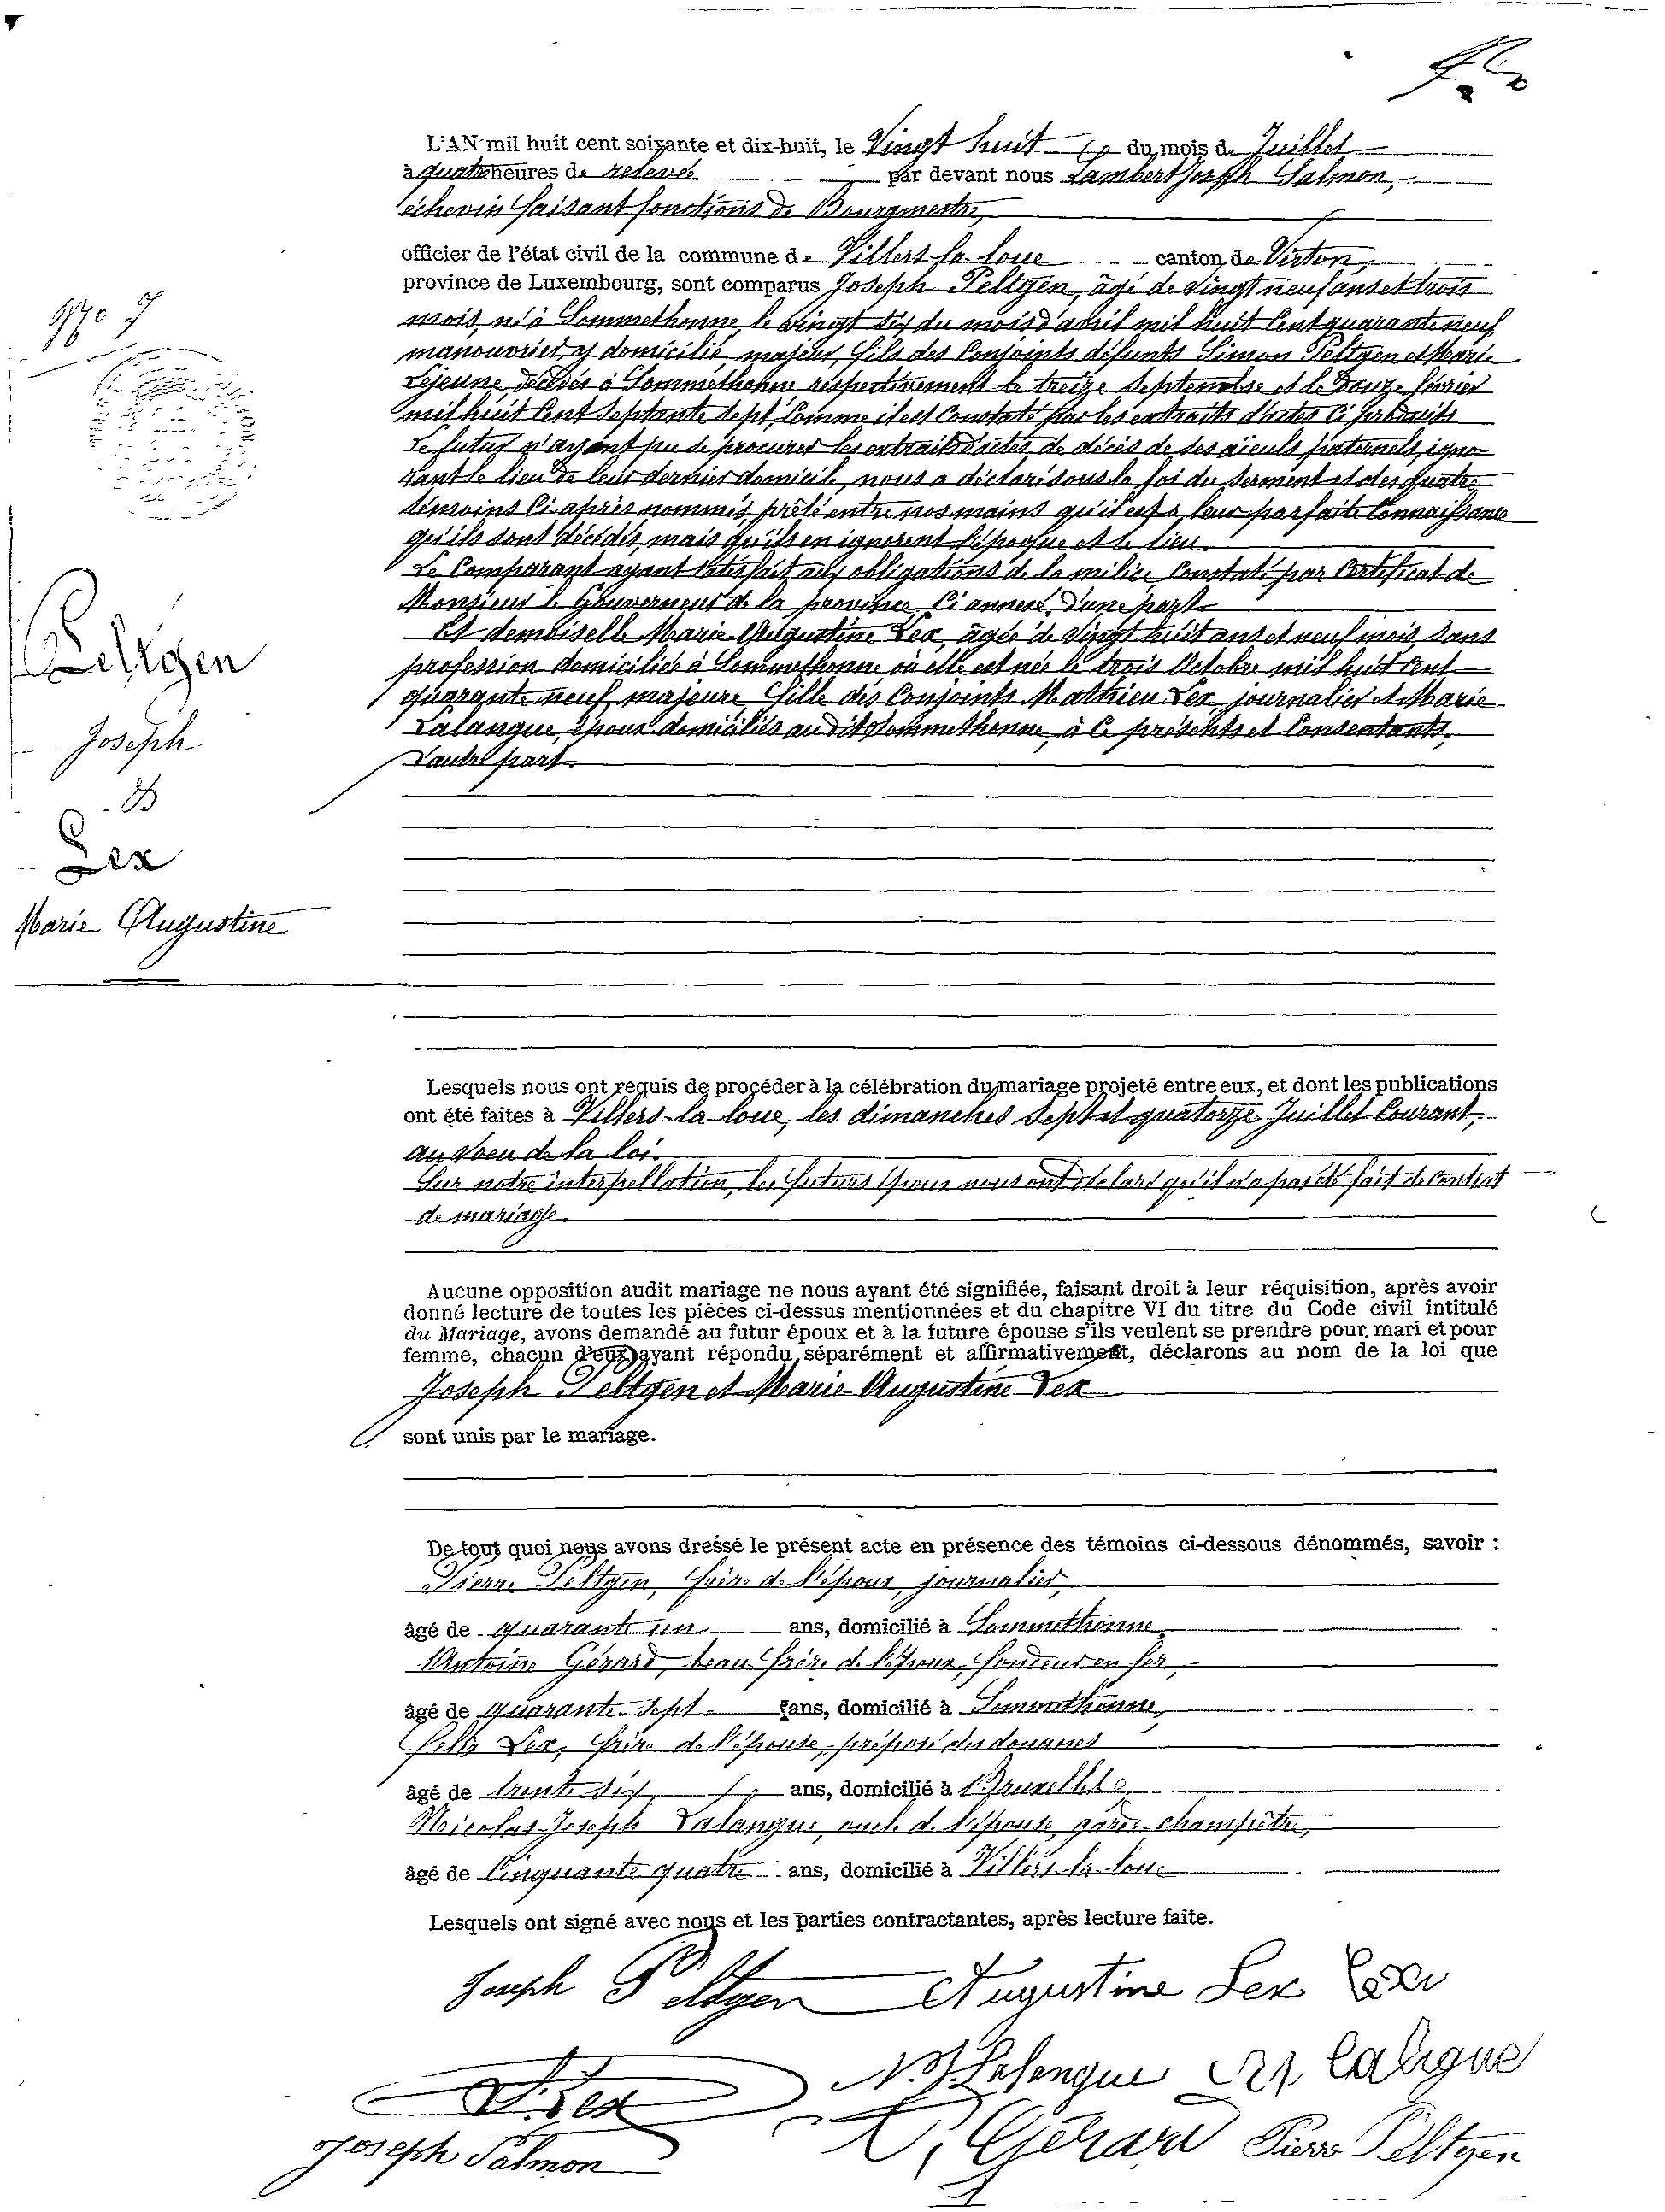 L'AN mil huit cent soixante et dix-huit, le Vingt huit du mois de Juillet
à quatre heures de relevée par devant nous Lambert Joseph Salmon,
échevin faisant fonctions de Bourgmestre,
officier de l'état civil de la commune de Villers-la-loue canton de Virton,
province de Luxembourg, sont comparus Joseph Peltgen, âgé de vingt neuf ans et trois
mois, né à Sommethonne, le vingt six du mois d'avril mil huit cent quarante neuf,
manouvrier y domicilié, majeur, fils des conjoints défunts Simon Peltgen et Marie
Lejeune, décédés à Sommethonne respectivement le treize septembre et le douze février
mil huit cent septante sept, comme il est constaté par les extraits d'actes ci produits
Le futur n'ayant pu se procurer les extraits d'actes de décès de ses aïeuls paternels, igno-
rant le lieu de leur dernier domicile, nous a déclaré sous la foi du serment et des quatre
témoins ci après nommés, prêté entre nos mains qu'il est à leur parfaite connaissance
qu'ils sont décédés, mais qu'ils en ignorent l'époque et le lieu.
Le comparant ayant satisfait aux obligations de la milice, constaté par certificat de
Monsieur le Gouverneur de la province, ci annexé, d'une part
Et demoiselle Marie Augustine Lex, âgée de vingt huit ans et neuf mois, sans
profession domiciliée à Sommethonne où elle est née le trois Octobre mil huit cent
quarante neuf, majeure, fille des conjoints Mathieu Lex, journalier et Marie
Lalangue, époux domiciliés au dit Sommethonne, à ce présents et consentants,
d'autre part
N° 7
Peltgen
Joseph
&
Lex
Marie Augustine
Lesquels nous ont requis de procéder à la célébration du mariage projeté entre eux, et dont les publications
ont été faites à Villers-la-loue, les dimanches sept et quatorze Juillet courant,
au vœu de la loi.
Sur notre interpellation, les futurs époux nous ont déclaré qu'il n'a pas été fait de contrat
de mariage.
Aucune opposition audit mariage ne nous ayant été signifiée, faisant droit à leur réquisition, après avoir
donné lecture de toutes les pièces ci-dessus mentionnées et du chapitre VI du titre du Code civil intitulé
du Mariage, avons demandé au futur époux et à la future épouse s'ils veulent se prendre pour mari et pour
femme, chacun d'eux ayant répondu séparément et affirmativement, déclarons au nom de la loi que
Joseph Peltgen et Marie Augustine Lex
sont unis par le mariage.
De tout quoi nous avons dressé le présent acte en présence des témoins ci-dessous dénommés, savoir :
Pierre Peltgen, frère de l'époux, journalier,
âgé de quarante un ans, domicilié à Sommethonne,
Antoine Gérard, beau frère de l'époux, fondeur en fer,
âgé de quarante-sept ans, domicilié à Sommethonne,
Félix Lex, frère de l'épouse, préposé des douanes
âgé de trente six ans, domicilié à Bruxelles,
Nicolas-Joseph Lalangue, oncle de l'épouse, garde-champêtre,
âgé de cinquante quatre ans, domicilié à Villers-la-loue
Lesquels ont signé avec nous et les parties contractantes, après lecture faite.
Joseph Peltgen Augustine Lex Lex
N. J. Lalangue
F. Lex
Gérard Pierre Peltgen
Joseph Salmon